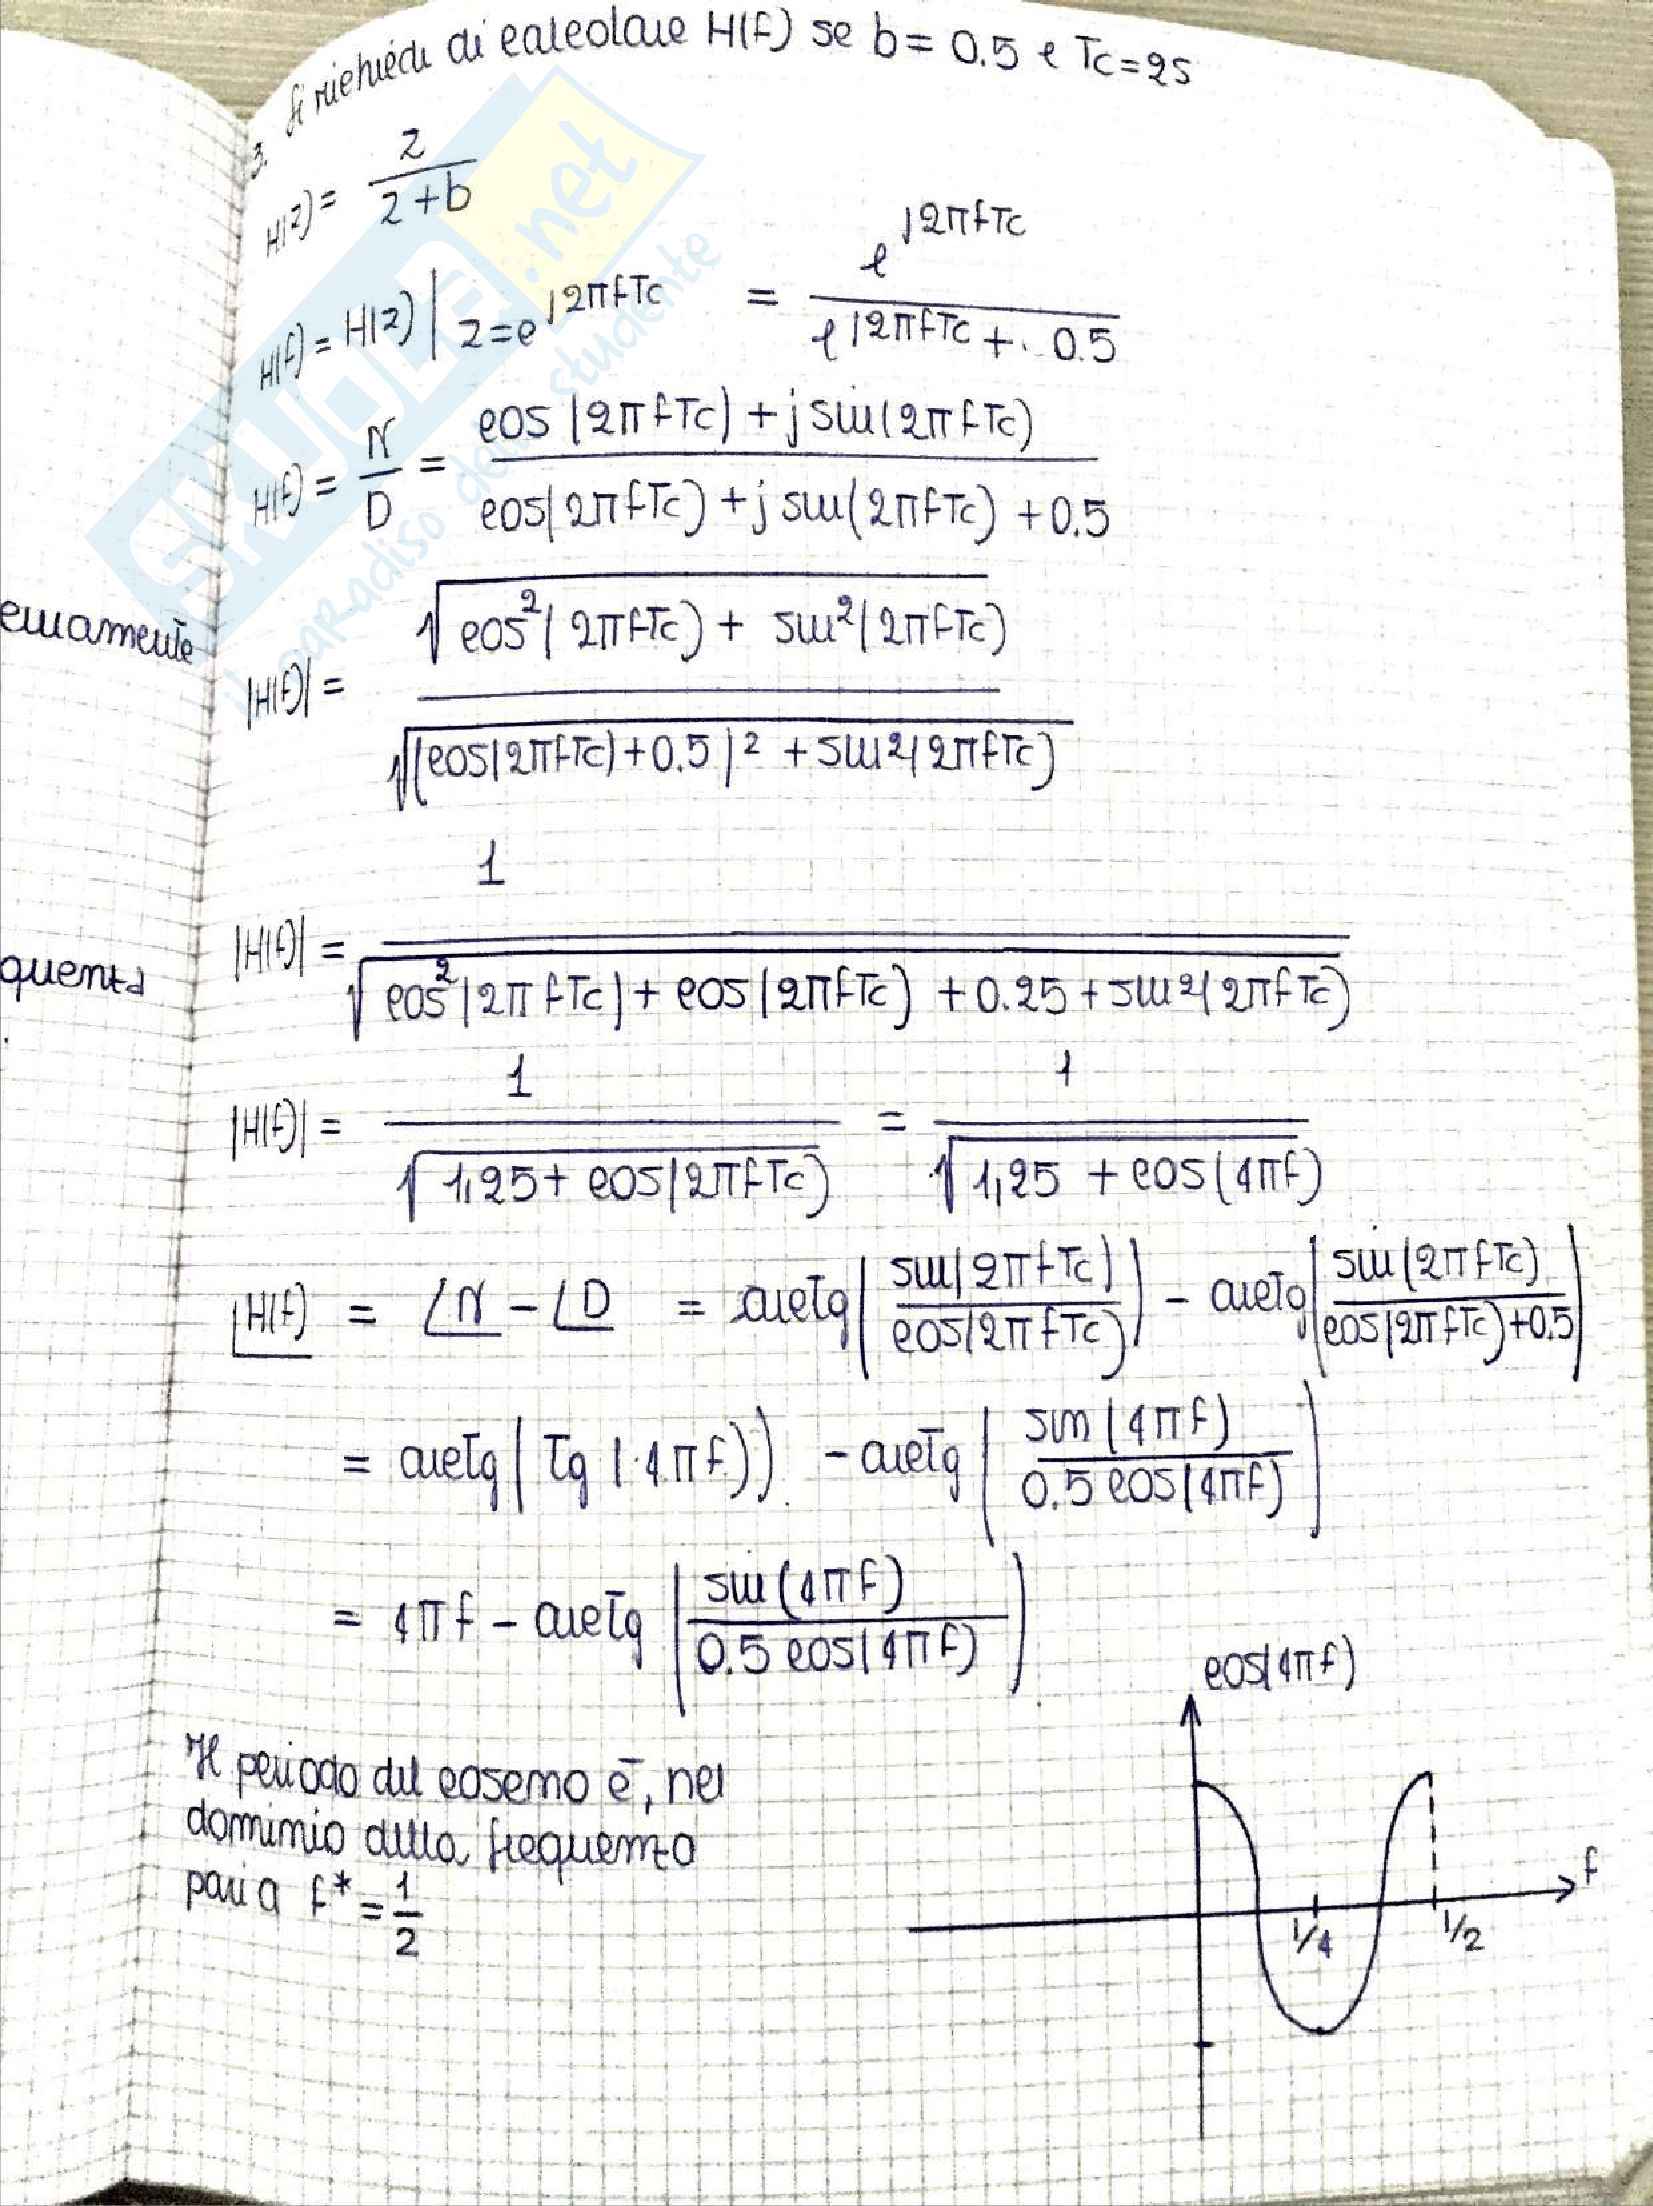 3. Si richiede di calcolare H(f) se b = 0.5 e Tc = 2s
H(z) = z / (z + b)
H(f) = H(z) | z = e^{j2πfTc} = e^{j2πfTc} / (e^{j2πfTc} + 0.5)
H(f) = N / D = (cos(2πfTc) + j sin(2πfTc)) / (cos(2πfTc) + j sin(2πfTc) + 0.5)
|H(f)| = √(cos²(2πfTc) + sin²(2πfTc)) / √((cos(2πfTc) + 0.5)² + sin²(2πfTc))
|H(f)| = 1 / √(cos²(2πfTc) + cos(2πfTc) + 0.25 + sin²(2πfTc))
|H(f)| = 1 / √(1,25 + cos(2πfTc)) = 1 / √(1,25 + cos(4πf))
∠H(f) = ∠N − ∠D = arctg(sin(2πfTc) / cos(2πfTc)) − arctg(sin(2πfTc) / (cos(2πfTc) + 0.5))
= arctg(tg(4πf)) − arctg(sin(4πf) / 0.5 cos(4πf))
= 4πf − arctg(sin(4πf) / 0.5 cos(4πf))
Il periodo del coseno è, nel
dominio della frequenza
pari a f* = 1/2
cos(4πf)
f
1/4
1/2
quenza
SKUOLA.net
il paradiso dello studente